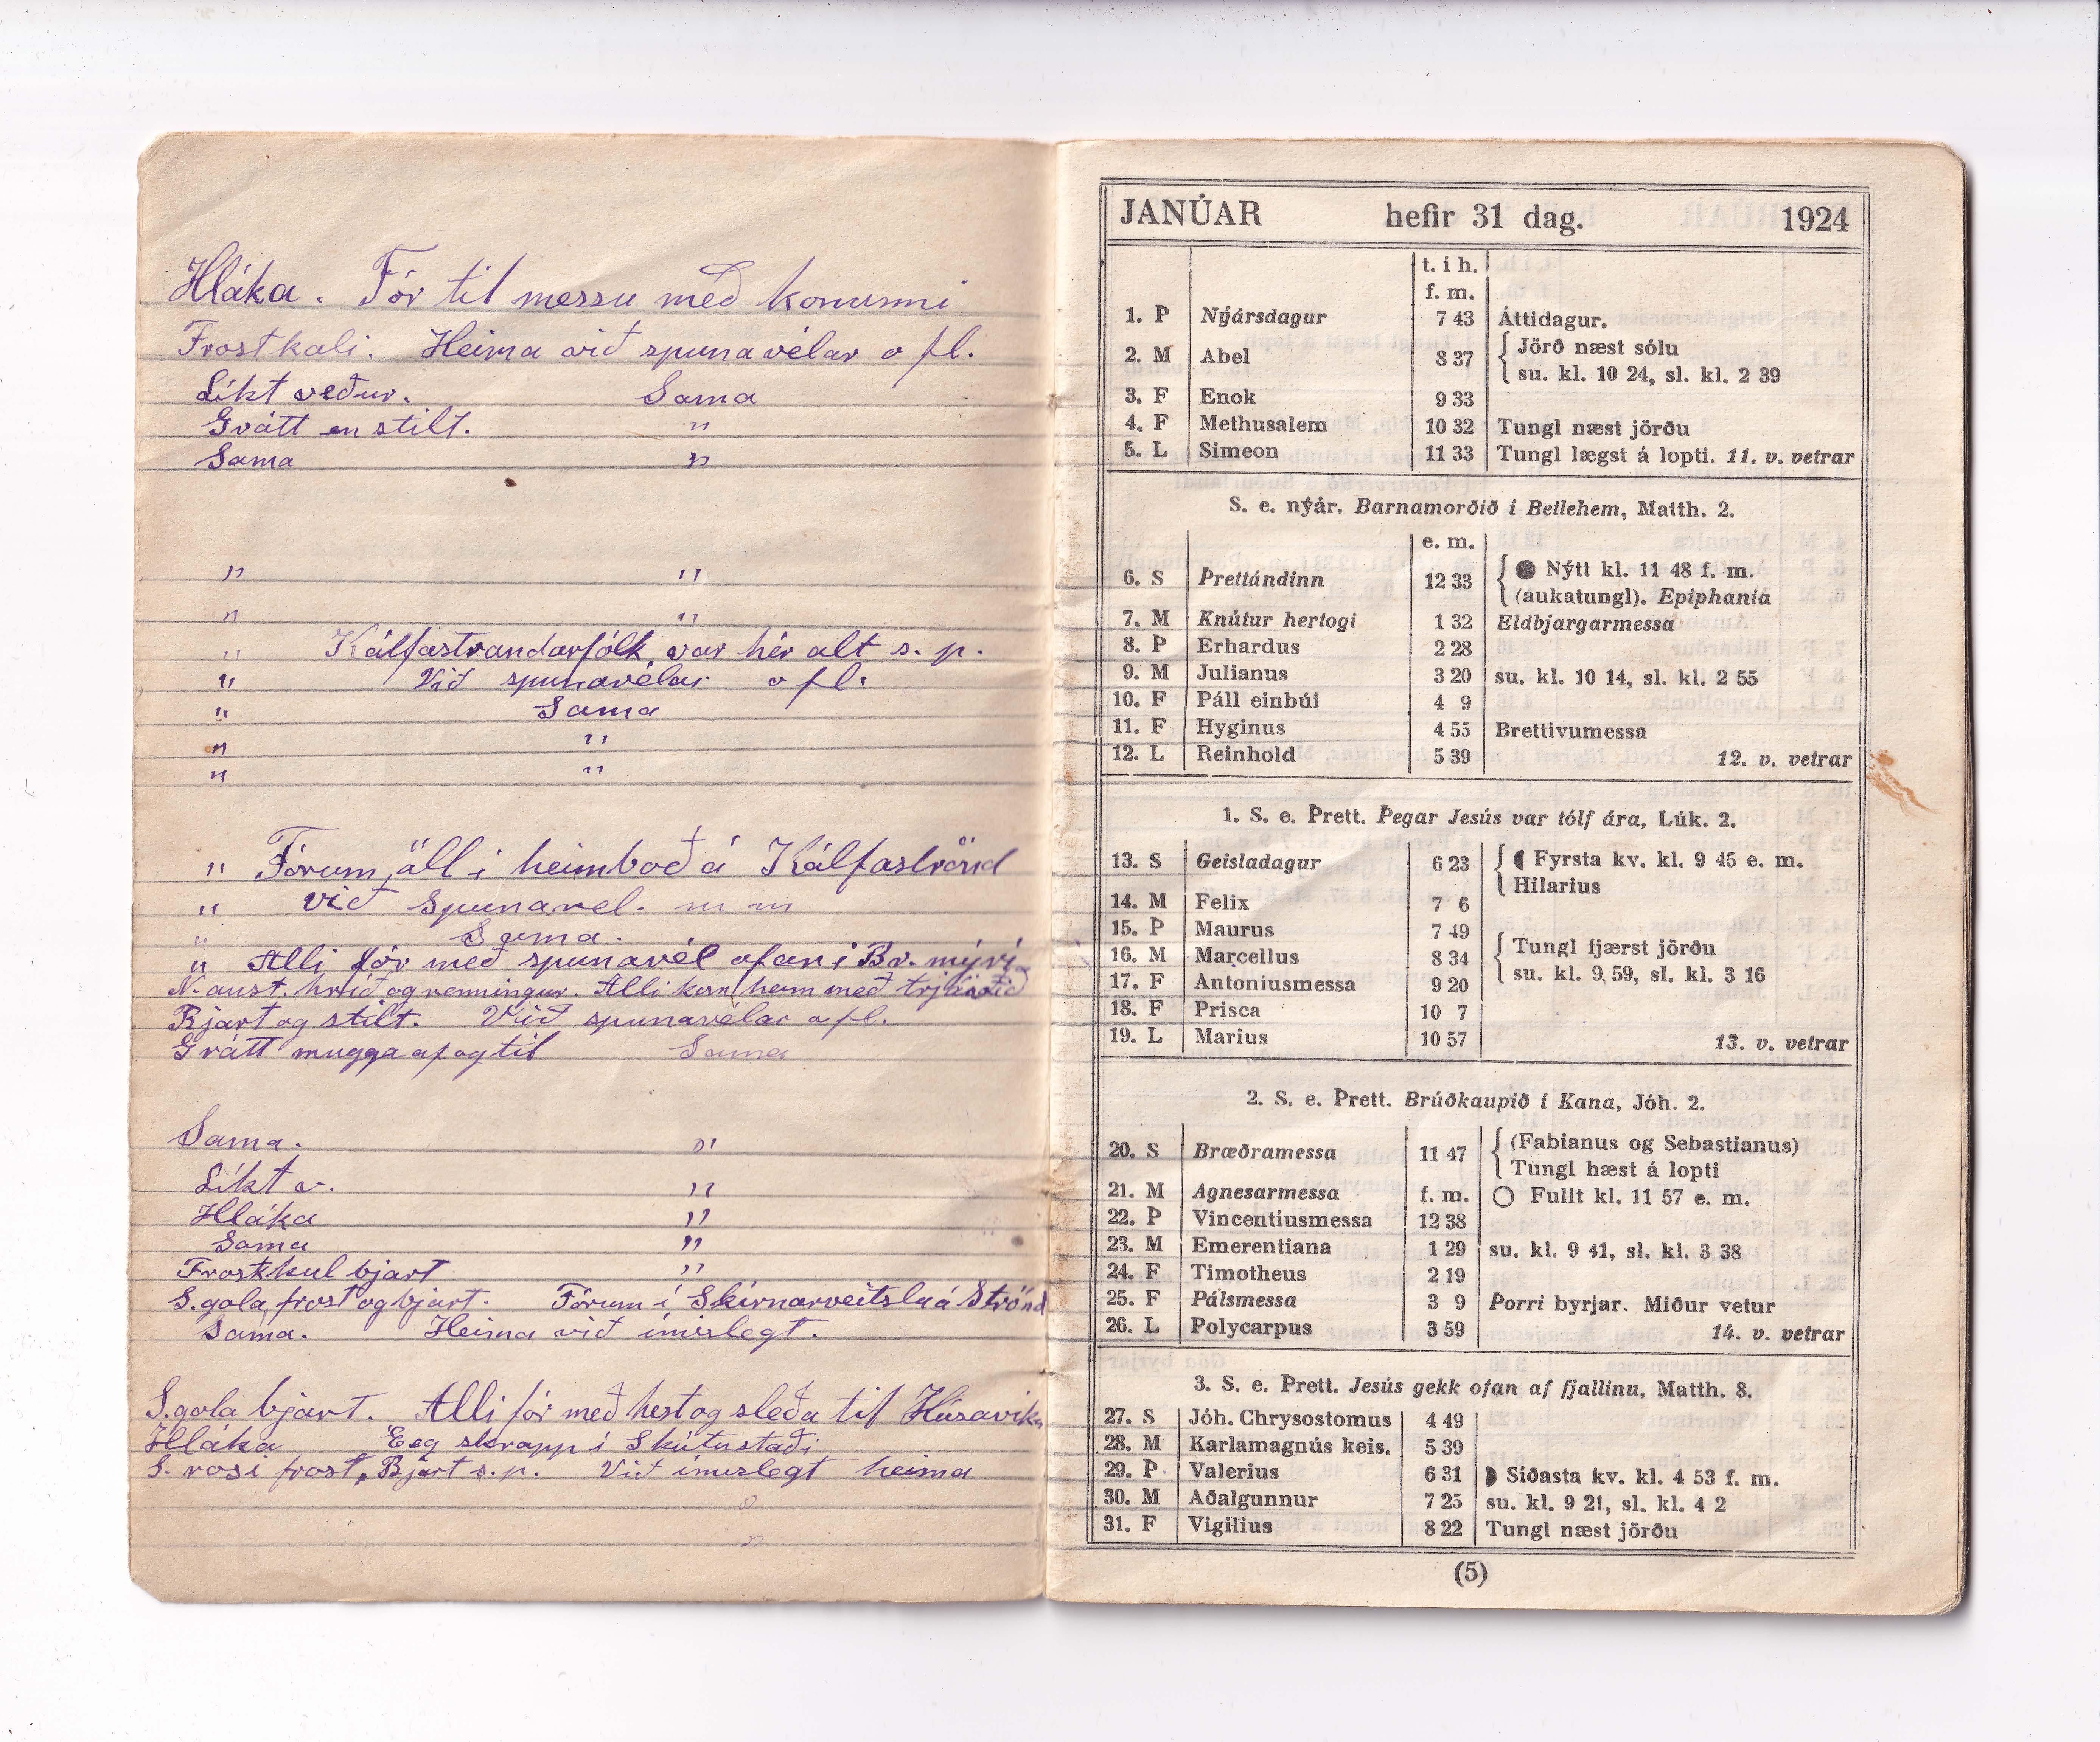 Hláka. Fór til messu með konunni
Frostkali. Heima við spunavélar o fl.
Líkt veður. Sama
Grátt en stilt. "
Sama "
" "
" "
" Kálfastrandarfólk var hér alt s. p.
" Við spunavélar o fl.
" Sama
" "
" "
" Fórum öll í heimboð á Kálfaströnd
" við spunavél. m m
" Sama.
" Alli fór með spunavél ofan í Br. mýri
N. aust. hríð og renningur. Alli kom heim með
Bjart og stilt. Við spunavélar o fl.
Grátt mugga af og til Sama
Sama. "
Líkt v. "
Hláka "
Sama "
Frostkul bjart "
S. gola, frost og bjart. Fórum í Skírnarveitslu á Strönd
Sama. Heima við ímislegt.
S. gola bjart. Alli fór með hest og sleða til Húsavíkur
Hláka Eg skrapp í Skútustaði
S. rosi frost, Bjart s. p. Við ímislegt heima
"
"
JANÚAR hefir 31 dag. 1924
t. í h.
f. m.
1. Þ Nýársdagur 7 43 Áttidagur.
2. M Abel 8 37 { Jörð næst sólu
su. kl. 10 24, sl. kl. 2 39
3. F Enok 9 33
4. F Methusalem 10 32 Tungl næst jörðu
5. L Simeon 11 33 Tungl lægst á lopti. 11. v. vetrar
S. e. nýár. Barnamorðið í Betlehem, Matth. 2.
e. m.
6. S Þrettándinn 12 33 { ● Nýtt kl. 11 48 f. m.
(aukatungl). Epiphania
7. M Knútur hertogi 1 32 Eldbjargarmessa
8. Þ Erhardus 2 28
9. M Julianus 3 20 su. kl. 10 14, sl. kl. 2 55
10. F Páll einbúi 4 9
11. F Hyginus 4 55 Brettivumessa
12. L Reinhold 5 39 12. v. vetrar
1. S. e. Þrett. Þegar Jesús var tólf ára, Lúk. 2.
13. S Geisladagur 6 23 { ◖ Fyrsta kv. kl. 9 45 e. m.
Hilarius
14. M Felix 7 6
15. Þ Maurus 7 49
16. M Marcellus 8 34 { Tungl fjærst jörðu
su. kl. 9 59, sl. kl. 3 16
17. F Antoniusmessa 9 20
18. F Prisca 10 7
19. L Marius 10 57 13. v. vetrar
2. S. e. Þrett. Brúðkaupið í Kana, Jóh. 2.
20. S Bræðramessa 11 47 { (Fabianus og Sebastianus)
Tungl hæst á lopti
21. M Agnesarmessa f. m. ○ Fullt kl. 11 57 e. m.
22. Þ Vincentiusmessa 12 38
23. M Emerentiana 1 29 su. kl. 9 41, sl. kl. 3 38
24. F Timotheus 2 19
25. F Pálsmessa 3 9 Þorri byrjar. Miður vetur
26. L Polycarpus 3 59 14. v. vetrar
3. S. e. Þrett. Jesús gekk ofan af fjallinu, Matth. 8.
27. S Jóh. Chrysostomus 4 49
28. M Karlamagnús keis. 5 39
29. Þ Valerius 6 31 ◗ Síðasta kv. kl. 4 53 f. m.
30. M Aðalgunnur 7 25 su. kl. 9 21, sl. kl. 4 2
31. F Vigilius 8 22 Tungl næst jörðu
(5)